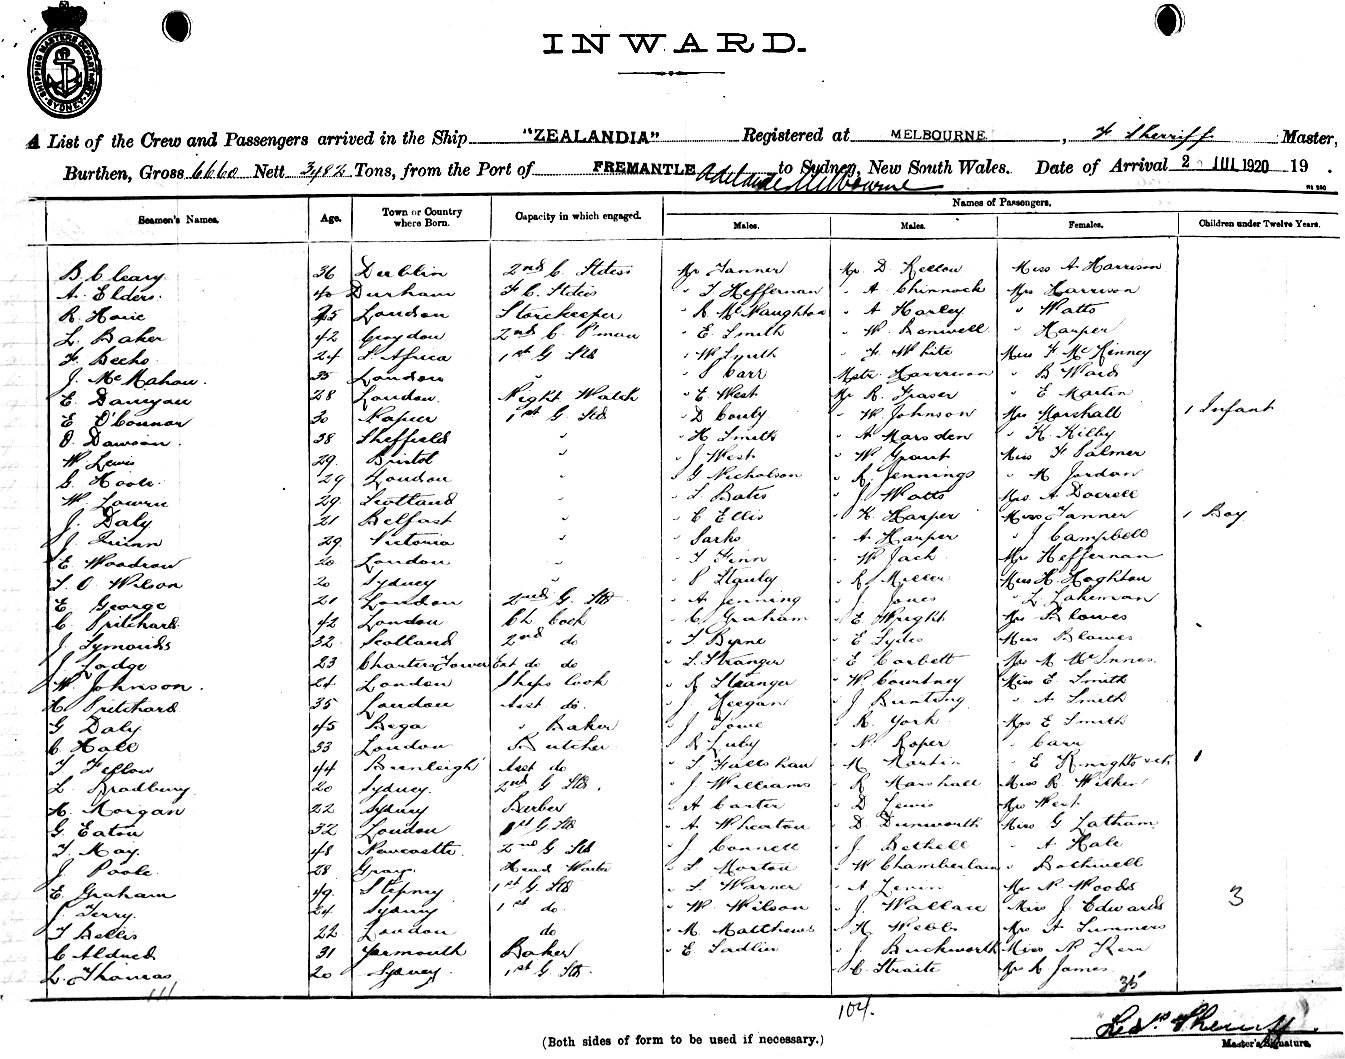 SHIPPING MASTERS DEPARTMENT SYDNEY
INWARD.
A List of the Crew and Passengers arrived in the Ship "ZEALANDIA" Registered at MELBOURNE, F Sherriff Master,
Burthen, Gross 6660 Nett 3482 Tons, from the Port of FREMANTLE Adelaide Melbourne to Sydney, New South Wales. Date of Arrival 2 JUL 1920 19 .
Seamen's Names. Age. Town or Country where Born. Capacity in which engaged. Names of Passengers.
Males. Males. Females. Children under Twelve Years.
B Cleary 36 Dublin 2nd C. Stdess Mr Tanner Mr D. Kellow Miss A. Harrison
A. Elders 40 Durham F C. Stdess " T Heffernan " A Chinnock Mrs Harrison
R. Horie 45 London Storekeeper " R McNaughton " A Harley " Watts
L. Baker 42 Croydon 2nd C. P'man " E Smith " W. Benwell " Harper
F. Beeho 24 S Africa 1st G Std " W Synth " F White Miss F McKinney
J. McMahon. 35 London " " S Carr Mstr Harrison " B Ward
E. Damyon 28 London Night Watch " E West Mr R. Fraser " E Martin
E O'Connor 30 Napier 1st G Std " D Couly " W Johnson Mrs Marshall 1 Infant
O. Dawson 38 Sheffield " " H. Smith " A Marsden " K. Kilby
W. Lewis 29 Bristol " " J West " W Grant Miss F Palmer
G. Hoole 29 London " " G Nicholson " R. Jennings " M Jordan
W. Lowrn 29 Scotland " " S Bates " J Watts Mrs A Docrell
J. Daly 21 Belfast " " C Ellis " H. Harper Miss Tanner 1 Boy
J. Quinn 29 Victoria " " Sarks " A Harper " J Campbell
E Woodrow 20 London " " T Finn " W Jack Mrs Heffernan
S. O. Wilson 20 Sydney " " S Stanly " R. Miller Miss H. Hoghton
E George 21 London 2nd G. Std. " A Jenning " J Jones " L Lakeman
C. Pritchard 42 London Ch Cook " C Graham " E Wright Mrs Blowes
J Symonds 32 Scotland 2nd do " T Byrne " E Sykes Miss Blowes
J Lodge 23 Charters Tower Ext do do " S. Stranger " E Corbett Mrs M McInnes
W. Johnson. 24 London Ships Cook " R Stranger " W Courtney Miss E Smith
H. Pritchard 35 London Asst do. " J Keegan " J Bunting " A Smith
G Daly 45 Bega " Baker " J Towe " R. York Mrs E Smith
C Hall 33 London Butcher " R Luly " N. Roper " Carr
T Feflow 44 Burleigh Asst do " S Fallohan " M Martin " E Knights & ch 1
L. Bradbury 20 Sydney 2nd G Std. " J. Williams " R Marshall Miss R. Wilkin
H. Morgan 22 Sydney Barber " A Carter " D Lewis Mrs West
G. Eaton 32 London 1st G Std " A Wheaton " D. Dunworth Miss G. Latham
T May 48 Newcastle 2nd G Std " J. Connell " J. Bethell " A Hale
J Poole 28 Grays Head Waiter " S. Morton " W Chamberlain " Bothwell
E. Graham 49 Stepney 1st G Std " S. Warner " A Levin Mrs N. Woods 3
J Terry 24 Sydney 1st do " W. Wilson " J. Wallace Miss J. Edwards
T Bellis 22 London do " M. Matthews " H Webbs Mrs A Summers
C Aldred 31 Yarmouth Baker " E Sadlin " J. Buckworth Miss N. Kerr
L. Thomas 20 Sydney. 1st G Std. " C Straite Mrs R James
111 104. 35
Sherriff
(Both sides of form to be used if necessary.) Master's Signature.